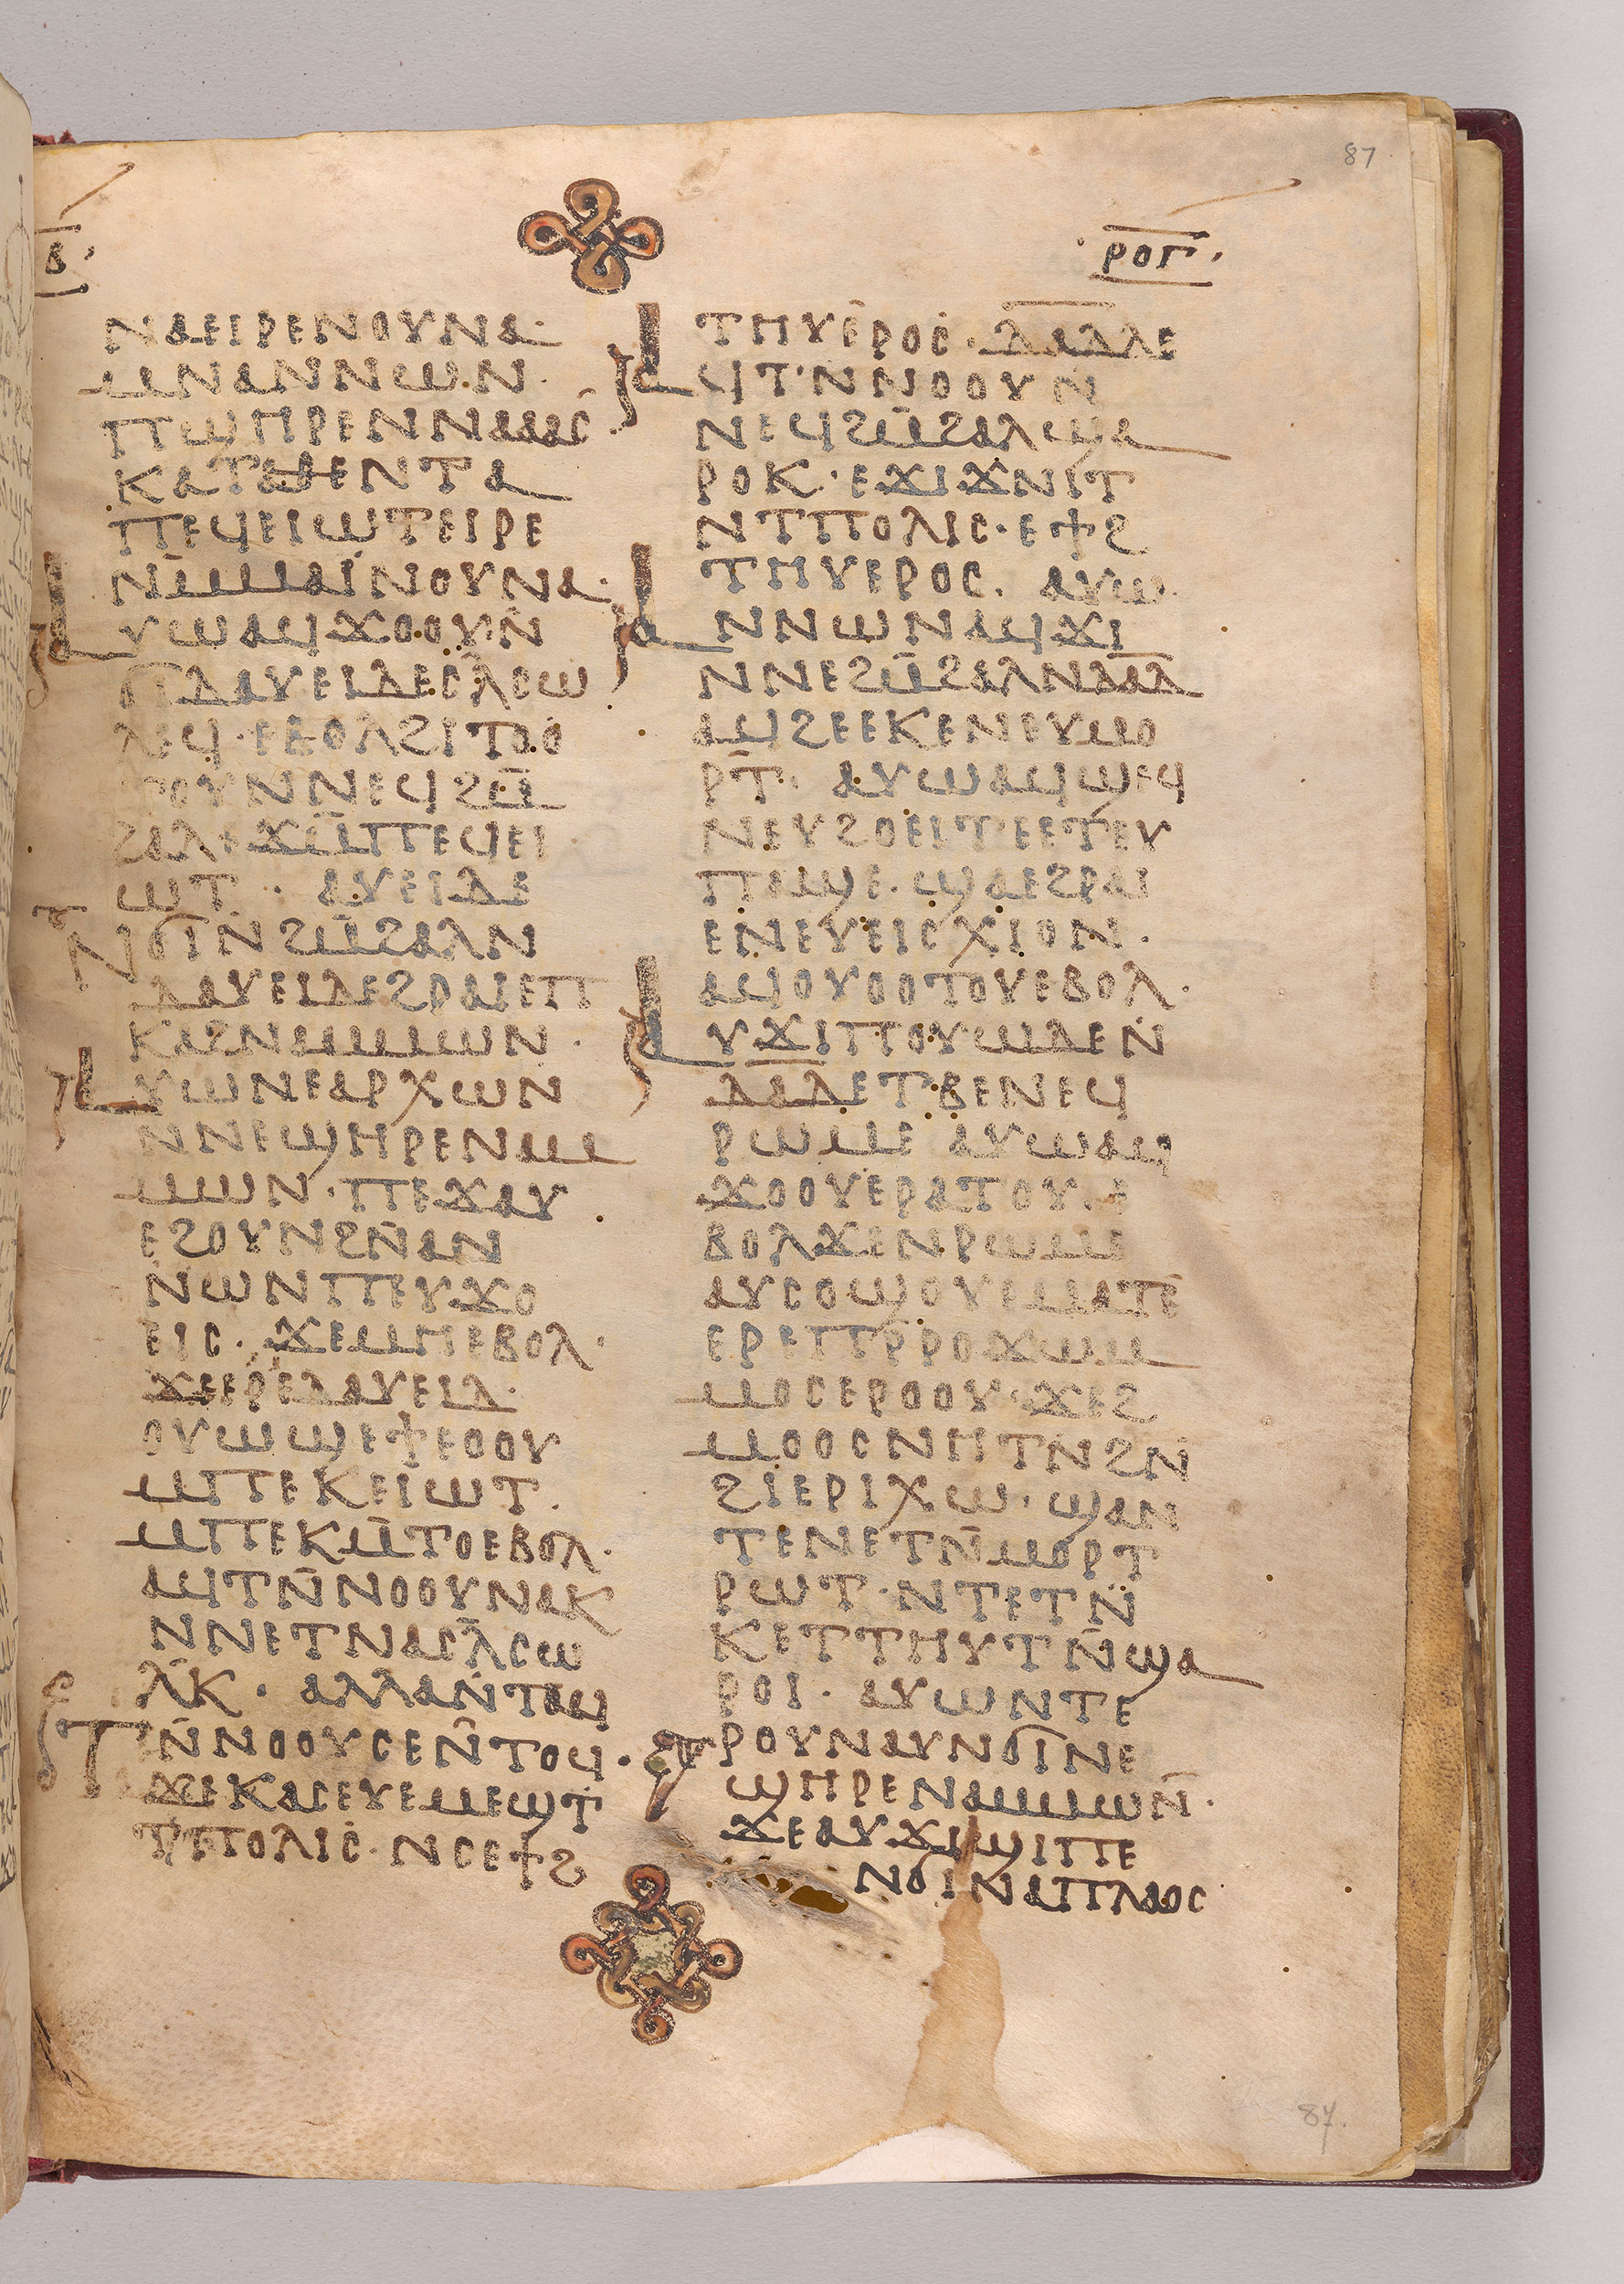 87
ⲃ
ⲣⲟⲅ
ⲛⲁⲉⲓⲣⲉⲛⲟⲩⲛⲁ·
ⲙⲛⲁⲛⲛⲱⲛ·
ⲡϣⲏⲣⲉⲛⲛⲁⲁⲥ
ⲕⲁⲧⲁⲑⲉⲛⲧⲁ
ⲡⲉϥⲉⲓⲱⲧⲉⲓⲣⲉ
ⲛⲙ̄ⲙⲁⲓ̈ⲛⲟⲩⲛⲁ·
ⲁⲩⲱⲁϥϫⲟⲟⲩⲛ̄
ϭⲓⲇⲁⲩⲉⲓⲇⲉⲥⲗ̄ⲥⲱ
ⲗϥ·ⲉⲃⲟⲗϩⲓⲧⲟⲟ
ⲧⲟⲩⲛⲛⲉϥϩⲙ̄
ϩⲁⲗ·ⲉϫⲙ̄ⲡⲉϥⲉⲓ
ⲱⲧ· ⲁⲩⲉⲓⲇⲉ
ⲛϭⲓⲛ̄ϩⲙ̄ϩⲁⲗⲛ
ⲇⲁⲩⲉⲓⲇⲉϩⲣⲁⲓⲉⲡ
ⲕⲁϩⲛⲁⲙⲙⲱⲛ·
ⲁⲩⲱⲛⲉⲁⲣⲭⲱⲛ
ⲛⲛⲉϣⲏⲣⲉⲛⲁⲙ
ⲙⲱⲛ·ⲡⲉϫⲁⲩ
ⲉϩⲟⲩⲛϩⲛ̄ⲁⲛ
ⲛⲱⲛⲡⲉⲩϫⲟ
ⲉⲓⲥ·ϫⲉⲙⲏⲉⲃⲟⲗ·
ϫⲉⲉⲣⲉⲇⲁⲩⲉⲓⲇ·
ⲟⲩⲱϣⲉϯⲉⲟⲟⲩ
ⲙⲡⲉⲕⲉⲓⲱⲧ·
ⲙⲡⲉⲕⲙ̄ⲧⲟⲉⲃⲟⲗ·
ⲁϥⲧⲛ̄ⲛⲟⲟⲩⲛⲁⲕ
ⲛⲛⲉⲧⲛⲁⲥⲗ̄ⲥⲱ
ⲗⲕ̄· ⲁⲗⲗⲁⲛ̄ⲧⲁϥ
ⲧⲛ̄ⲛⲟⲟⲩⲥⲉⲛ̄ⲧⲟϥ·
ϫⲉⲕⲁⲥⲉⲩⲉⲙⲉϣⲧ
ⲧⲡⲟⲗⲓⲥ·ⲛⲥⲉϯϩ
ⲧⲏⲩⲉⲣⲟⲥ·ⲇⲁⲇⲗⲉ
ⲁϥⲧⲛⲛⲟⲟⲩⲛ̄
ⲛⲉϥϩⲙ̄ϩⲁⲗϣⲁ
ⲣⲟⲕ·ⲉϫⲓϫⲛⲓⲧ
ⲛⲧⲡⲟⲗⲓⲥ·ⲉϯϩ
ⲧⲏⲩⲉⲣⲟⲥ. ⲁⲩⲱ
ⲁⲛⲛⲱⲛⲁϥϫⲓ
ⲛⲛⲉϩⲙ̄ϩⲁⲗⲛⲇⲁⲇ
ⲁϥϩⲉⲉⲕⲉⲛⲉⲩⲙⲟ
ⲣⲧ̄· ⲁⲩⲱⲁϥϣⲉϥ
ⲛⲉⲩϩⲟⲉⲓⲧⲉⲉⲧⲉⲩ
ⲡⲁϣⲉ·ϣⲁⲉϩⲣⲁⲓ
ⲉⲛⲉⲩⲉⲓⲥⲭⲓⲟⲛ·
ⲁϥⲟⲩⲟⲟⲧⲟⲩⲉⲃⲟⲗ·
ⲁⲩϫⲓⲡⲟⲩⲱⲇⲉⲛ̄
ⲇⲁⲇⲉⲧⲃⲉⲛⲉϥ
ⲣⲱⲙⲉ ⲁⲩⲱⲁϥ
ϫⲟⲟⲩⲉⲣⲁⲧⲟⲩ·ⲉ
ⲃⲟⲗϫⲉⲛⲣⲱⲙⲉ
ⲁⲩⲥⲟϣⲟⲩⲉⲙⲁⲧⲉ
ⲉⲣⲉⲡⲣ̄ⲣⲟϫⲱⲙ
ⲙⲟⲥⲉⲣⲟⲟⲩ·ϫⲉϩ
ⲙⲟⲟⲥⲛⲏⲧⲛϩⲛ̄
ϩⲓⲉⲣⲓⲭⲱ·ϣⲁⲛ
ⲧⲉⲛⲉⲧⲛ̄ⲙⲟⲣⲧ
ⲣⲱⲧ·ⲛⲧⲉⲧⲛ̄
ⲕⲉⲧⲧⲏⲩⲧⲛ̄ϣⲁ
ⲣⲟⲓ· ⲁⲩⲱⲛⲧⲉ
ⲣⲟⲩⲛⲁⲩⲛϭⲓⲛⲉ
ϣⲏⲣⲉⲛⲁⲙⲙⲱⲛ̄·
ϫⲉⲁⲩϫⲓϣⲓⲡⲉ
ⲛϭⲓⲛⲁⲡⲗⲁⲟⲥ
87.